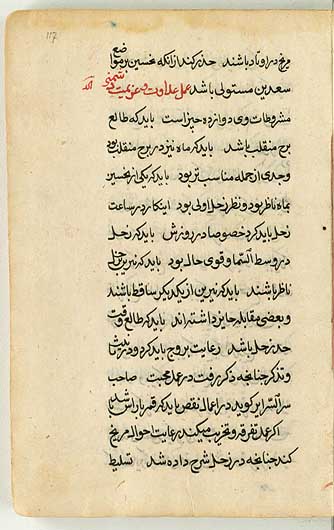 117
مریخ در اوتاد باشند حذر کند از آنکه نحسین بر مواضع
سعدین مستولی باشد عمل عداوت و دشمنی
مشروطات وی دوازده چیز است باید که طالع
برج منقلب باشد باید که ماه نیز در برج منقلب بود
وجدی از جمله مناسب تر بود باید که یکی از نحسین
بماه ناظر بود و نظر زحل اولی بود اینکار در ساعت
زحل باید کرد خصوصا در روزش باید که زحل
در وسط السما و قوی حال بود باید که نیرین بزحل
ناظر باشند باید که نیرین از یکدیگر ساقط باشند
و بعضی مقابله جایز داشته اند باید که طالع وقت
حد زحل باشد رعایت بروج باید کرد در تانیث
و تذکیر چنانچه ذکر رفت در عمل محبت صاحب
سر السر گوید در اعمال نقص باید که قمر باشد
اگر عمل تفرقه و تخریب میکند رعایت احوال مریخ
کند چنانچه در زحل شرح داده شد تسلیط